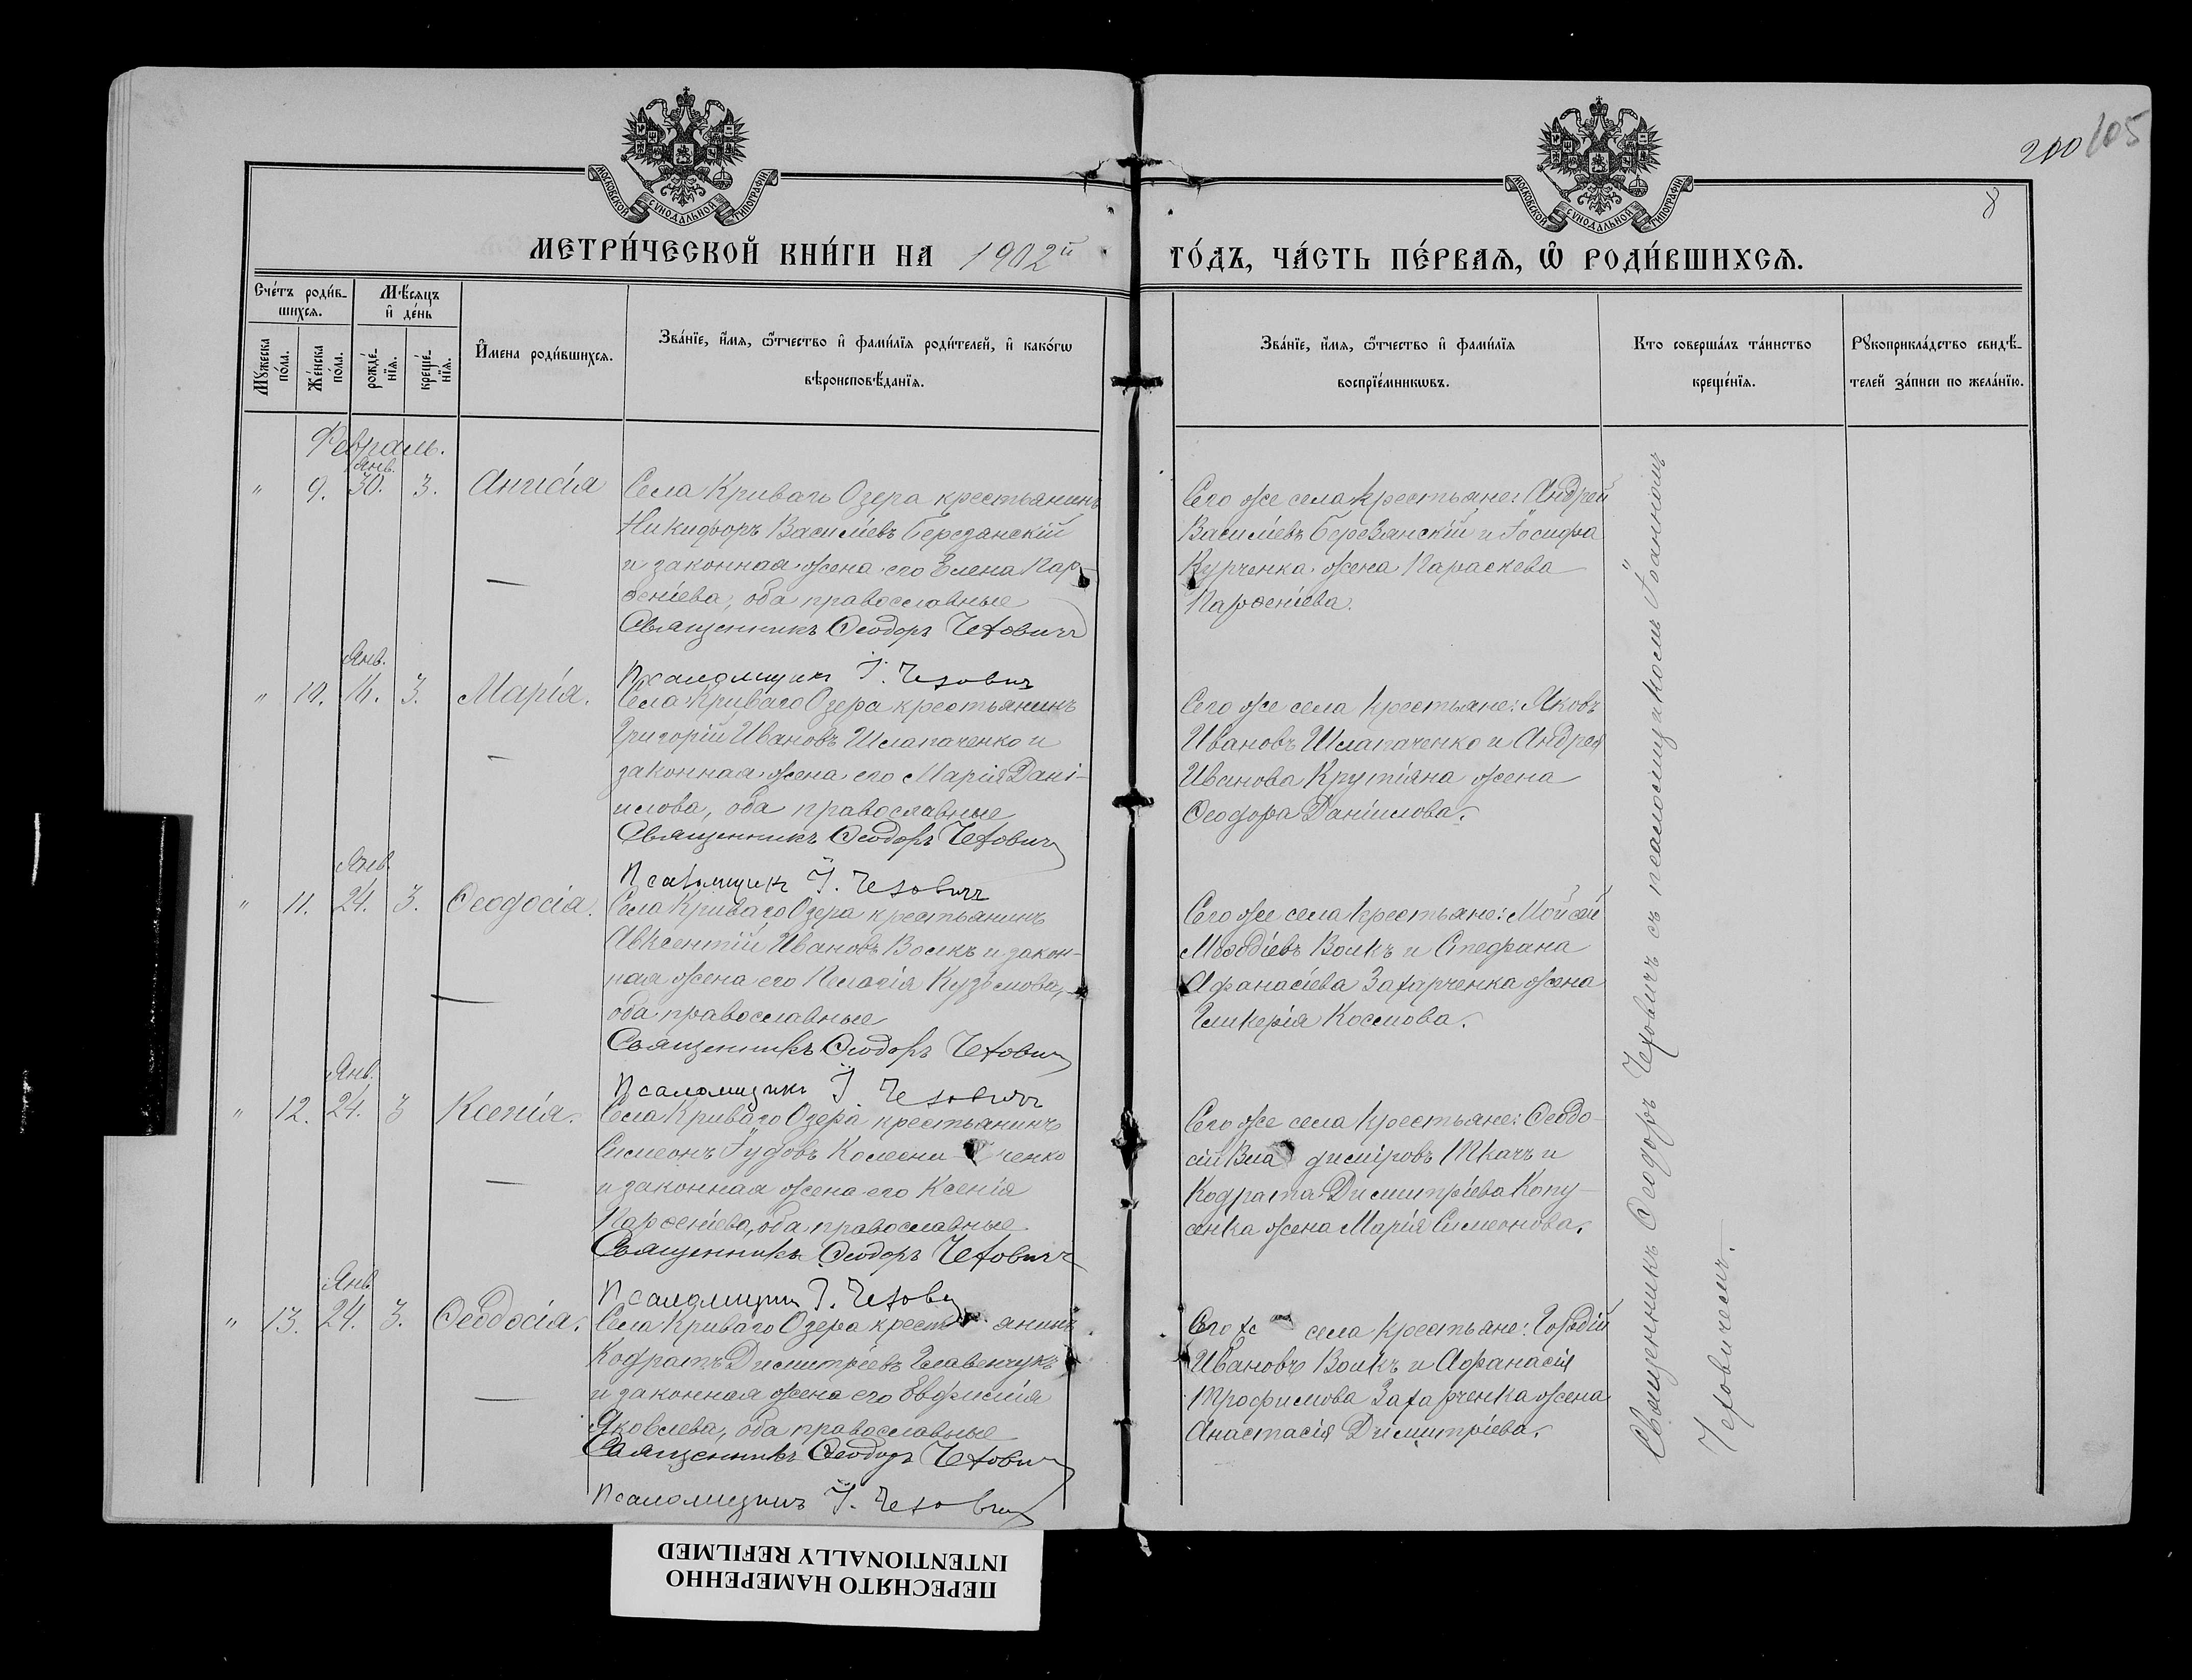 200 105
8
МОСКОВСКОЙ СѴНОДАЛЬНОЙ ТИПОГРАФІИ
МОСКОВСКОЙ СѴНОДАЛЬНОЙ ТИПОГРАФІИ
МЕТРИ́ЧЕСКОЙ КНИ́ГИ НА 1902й ГО́ДЪ, ЧА́СТЬ ПЕ́РВАѦ, Ѡ҆ РОДИ́ВШИХСѦ.
Сче́тъ роди́в-
шихсѧ.
Мꙋ́жеска по́ла.
Же́нска по́ла.
Мѣ́сѧцъ и҆ де́нь
рожде́-нїѧ.
креще́-нїѧ.
И҆мена роди́вшихсѧ.
Зва́нїе, и҆́мѧ, ѻ҆́тчество и҆ фами́лїѧ роди́телей, и҆ како́гѡ
вѣроисповѣ́данїѧ.
Зва́нїе, и҆́мѧ, ѻ҆́тчество и҆ фами́лїѧ
воспрїе́мникѡвъ.
Кто соверша́лъ та́инство
креще́нїѧ.
Рꙋкоприкла́дство свидѣ́-
телей за́писи по жела́нїю.
Февраль.
Янв.
" 9. 30. 3. Анисія
Села Криваго Озера крестьянинъ
Никифоръ Василіевъ Березанскій
и законная жена его Елена Пар-
ѳеніева, оба православные
Священникъ Ѳеодоръ Чехович
Псаломщикъ І. Чехович
Сего же села крестьяне: Андрей
Василіевъ Березянскій и Іосифа
Курченка жена Параскева
Парѳеніева.
Янв.
" 10. 16. 3. Марія.
Села Криваго Озера крестьянинъ
Григорій Ивановъ Шлапаченко и
законная жена его Марія Дані-
илова, оба православные
Священникъ Ѳеодоръ Чехович
Псаломщикъ І. Чехович
Сего же села крестьяне: Яковъ
Ивановъ Шлапаченко и Андрея
Иванова Крутіяна жена
Ѳеодора Даніилова.
Янв.
" 11. 24. 3. Ѳеодосія.
Села Криваго Озера крестьянинъ
Авксентій Ивановъ Волкъ и закон-
ная жена его Пелагія Кузьмова,
оба православные
Священникъ Ѳеодоръ Чехович
Псаломщикъ І. Чехович
Сего же села крестьяне: Мойсей
Меѳодіевъ Волкъ и Стефана
Афанасіева Захарченка жена
Гликерія Космова.
Янв.
" 12. 24. 3 Ксенія.
Села Криваго Озера крестьянинъ
Симеонъ Іудовъ Колесниченко
и законная жена его Ксенія
Парѳеніева, оба православные
Священникъ Ѳеодоръ Чехович
Псаломщикъ І. Чехови
Сего же села крестьяне: Ѳеодо-
сій Владиміровъ Ткачъ и
Кодрата Димитріева Копу-
сенка жена Марія Симеонова.
Янв
" 13. 24. 3. Ѳеодосія.
Села Криваго Озера крестьянинъ
Кодратъ Димитріевъ Главенчукъ
и законная жена его Евфимія
Яковлева, оба православные
Священникъ Ѳеодоръ Чехович
Псаломщикъ І. Чехович
Сего же села крестьяне: Гордій
Ивановъ Волкъ и Афанасія
Трофимова Захарченка жена
Анастасія Димитріева.
Священникъ Ѳеодоръ Чеховичъ съ псаломщикомъ Іоанномъ
Чеховичемъ.
ПЕРЕСНЯТО НАМЕРЕННО
INTENTIONALLY REFILMED